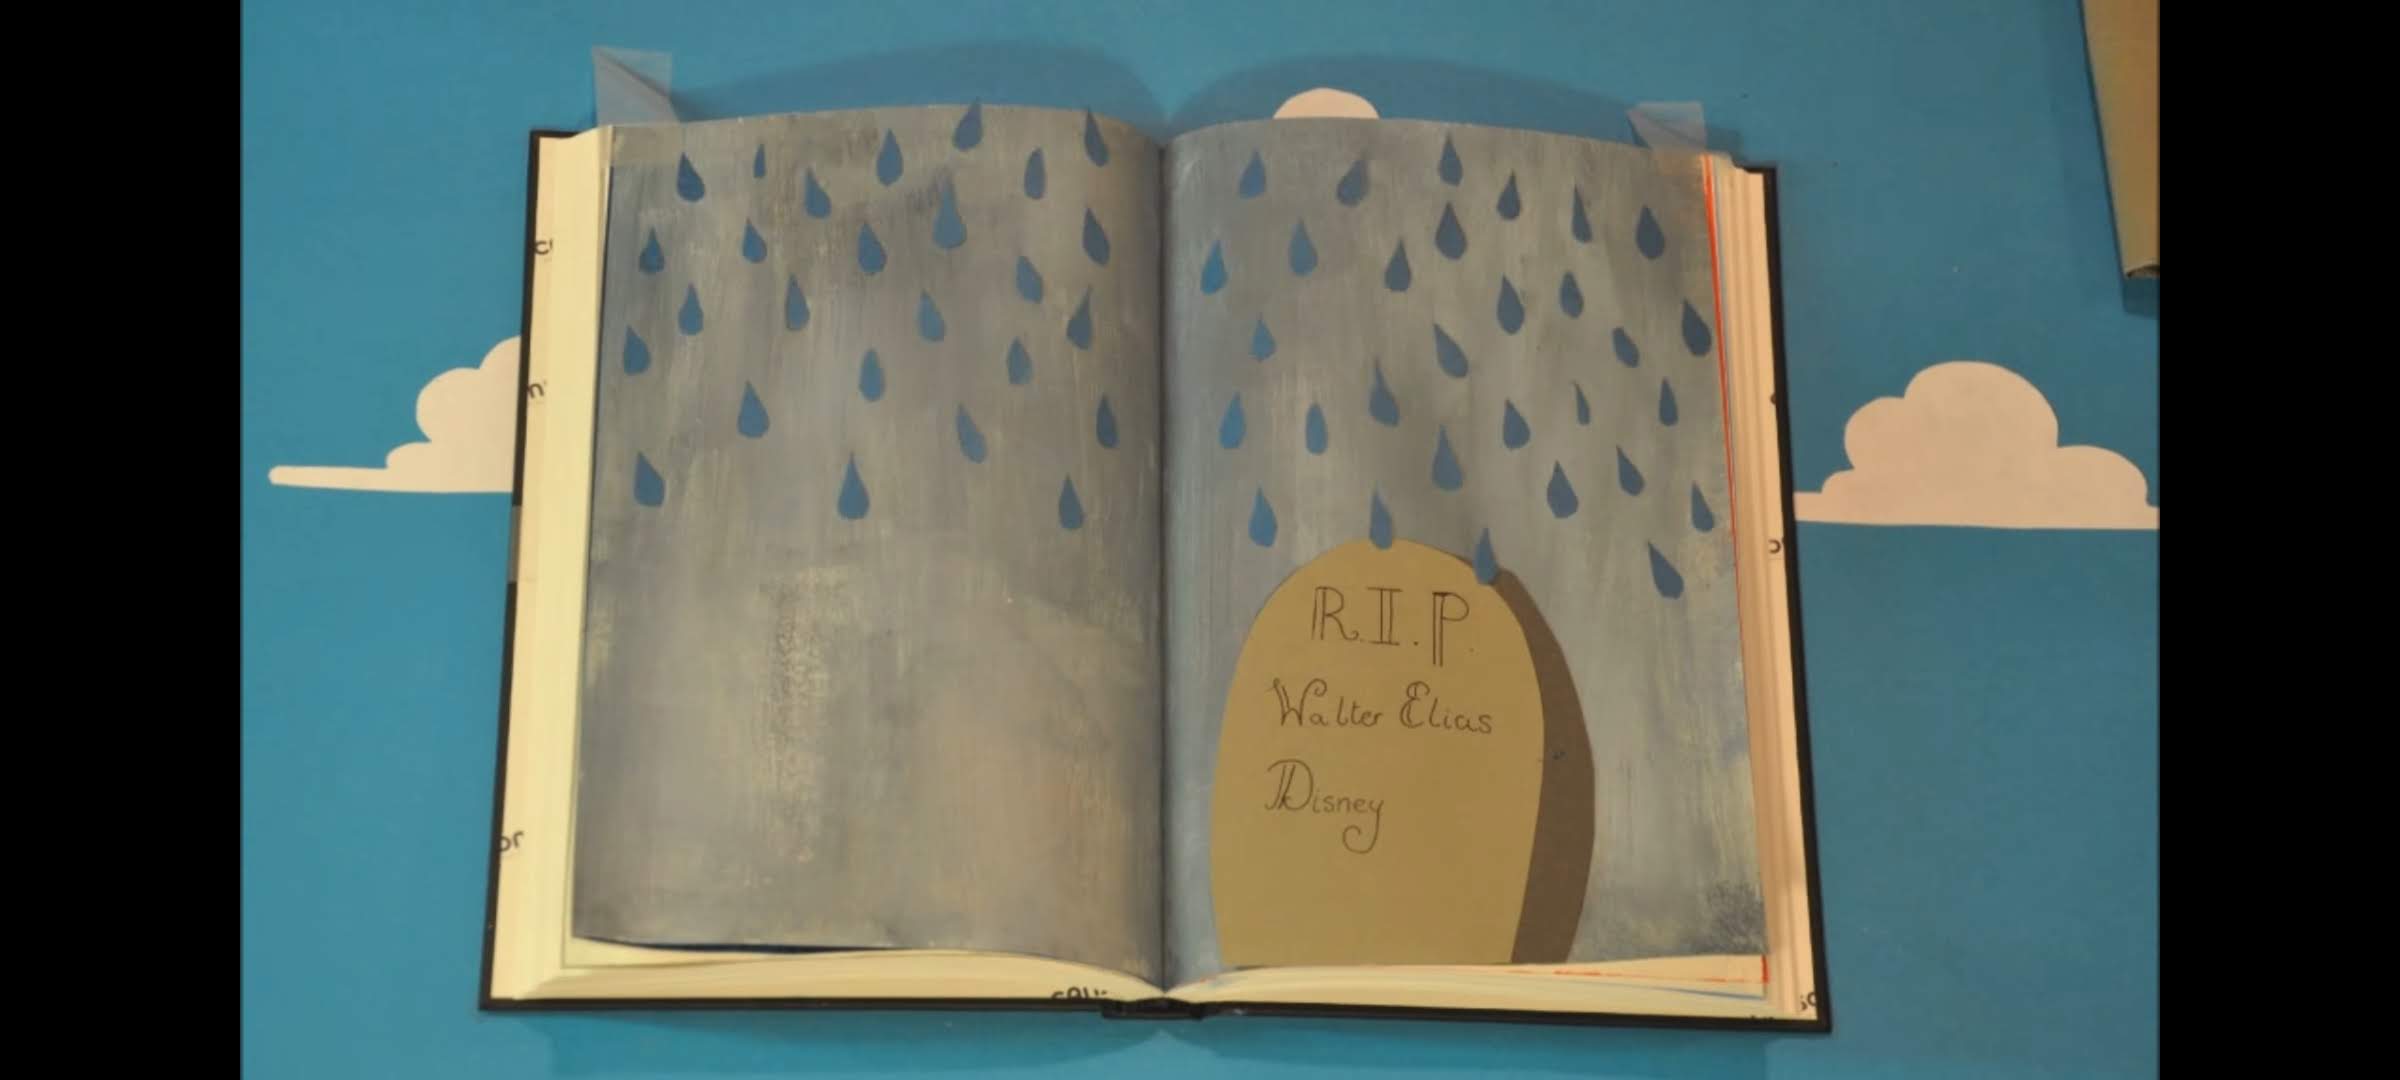 R.I.P.
Walter Elias
Disney